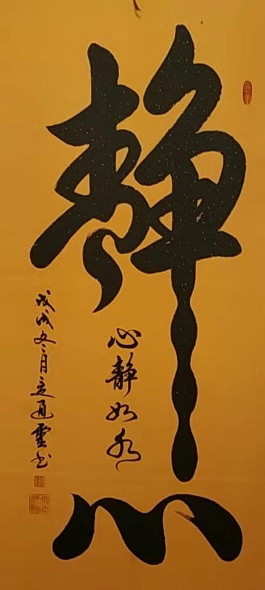 静心
心静如水
戊戌冬月立通灵书